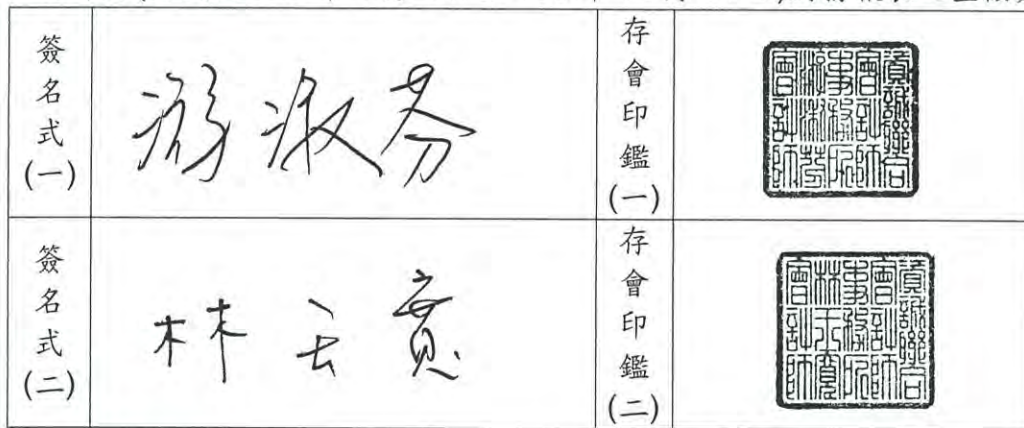 簽名式(一)
游淑芬
存會印鑑(一)
資誠聯合
會計師
事務所
游淑芬
會計師
簽名式(二)
林玉寬
存會印鑑(二)
資誠聯合
會計師
事務所
林玉寬
會計師